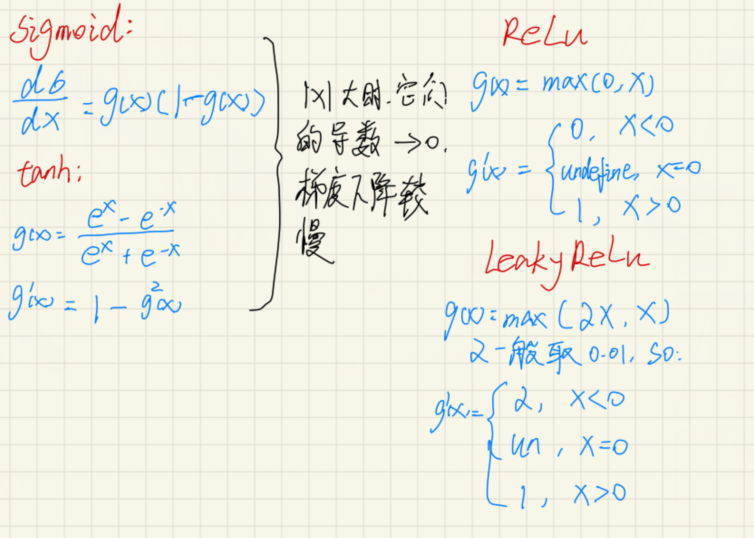 Sigmoid:
dσ/dx = g(x)(1-g(x))
tanh:
g(x) = (e^x - e^-x)/(e^x + e^-x)
g'(x) = 1 - g²(x)
|x|大时.它们
的导数→0,
梯度下降较
慢
ReLu
g(x) = max(0, x)
g'(x) = { 0, x<0
undefine, x=0
1, x>0
Leaky ReLu
g(x) = max(αx, x)
α一般取0.01, so:
g'(x) = { α, x<0
un, x=0
1, x>0